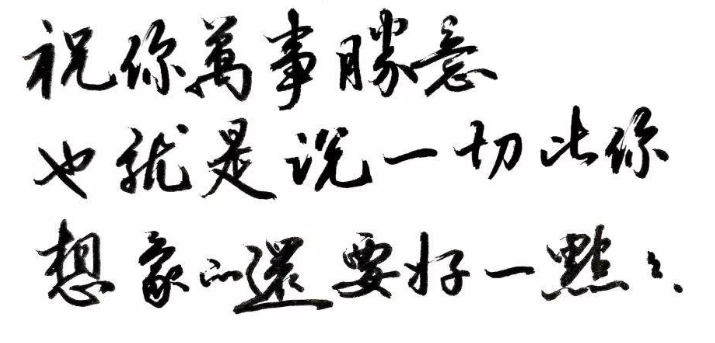 祝你萬事勝意
也就是说一切比你
想象的還要好一點々